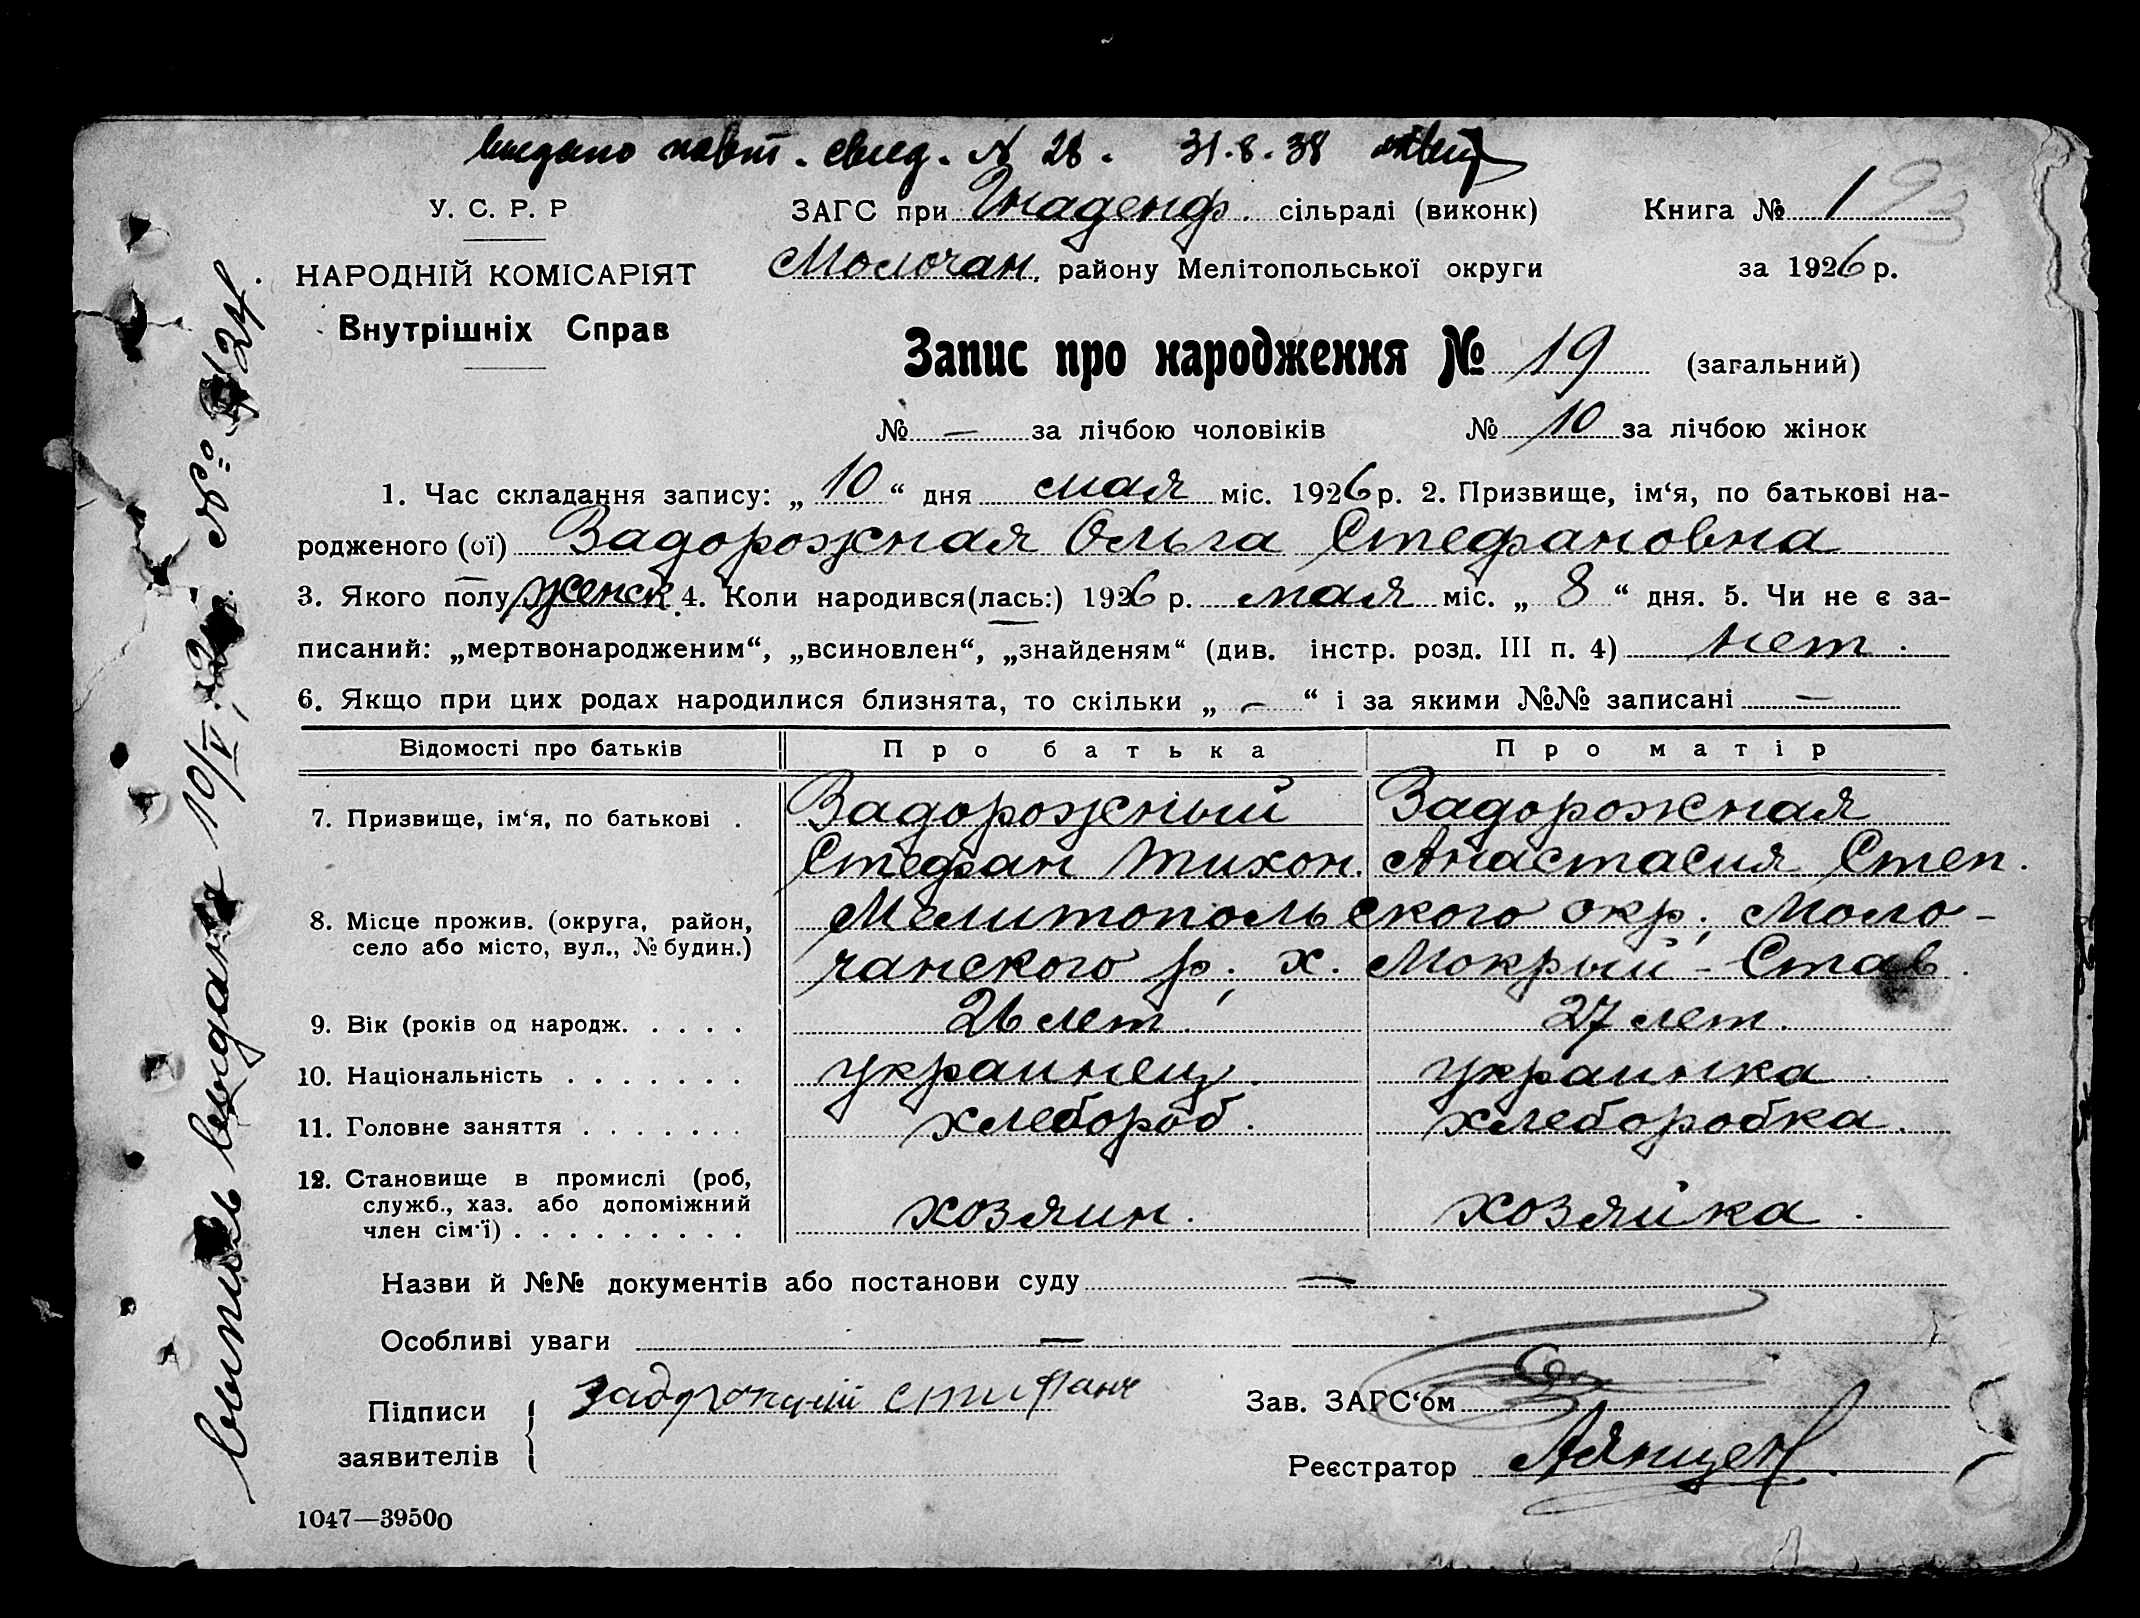 выдано повт. свид. № 28. 31.8.38
У. С. Р. Р
НАРОДНІЙ КОМІСАРІЯТ
Внутрішніх Справ
ЗАГС при Гнаденф. сільраді (виконк)
Молочан. району Мелітопольської округи
Книга № 1 93
за 1926 р.
Запис про народження № 19 (загальний)
№ — за лічбою чоловіків № 10 за лічбою жінок
1. Час складання запису: „ 10 “ дня мая міс. 1926 р. 2. Призвище, ім‘я, по батькові на-
родженого (ої) Задорожная Ольга Стефановна
3. Якого полу женск. 4. Коли народився(лась:) 1926 р. мая міс. „ 8 “ дня. 5. Чи не є за-
писаний: „мертвонародженим“, „всиновлен“, „знайденям“ (див. інстр. розд. III п. 4) нет.
6. Якщо при цих родах народилися близнята, то скільки „ — “ і за якими №№ записані —
Відомості про батьків Про батька Про матір
7. Призвище, ім‘я, по батькові . Задорожный Задорожная
Стефан Тихон. Анастасия Степ.
8. Місце прожив. (округа, район, Мелитопольского окр., Моло-
село або місто, вул., № будин.) чанского р., х. Мокрый-Став.
9. Вік (років од народж. . . . . 26 лет. 27 лет.
10. Національність . . . . . . . украинец. украинка.
11. Головне заняття . . . . . . . хлебороб. хлеборобка.
12. Становище в промислі (роб,
служб., хаз. або допоміжний хозяин. хозяйка.
член сім‘ї) . . . . . . . . .
Назви й №№ документів або постанови суду —
Особливі уваги —
Підписи
заявителів
Задорожний
Зав. ЗАГС‘ом
Реєстратор
1047—39500
выпись выдана 10/V, № 124.